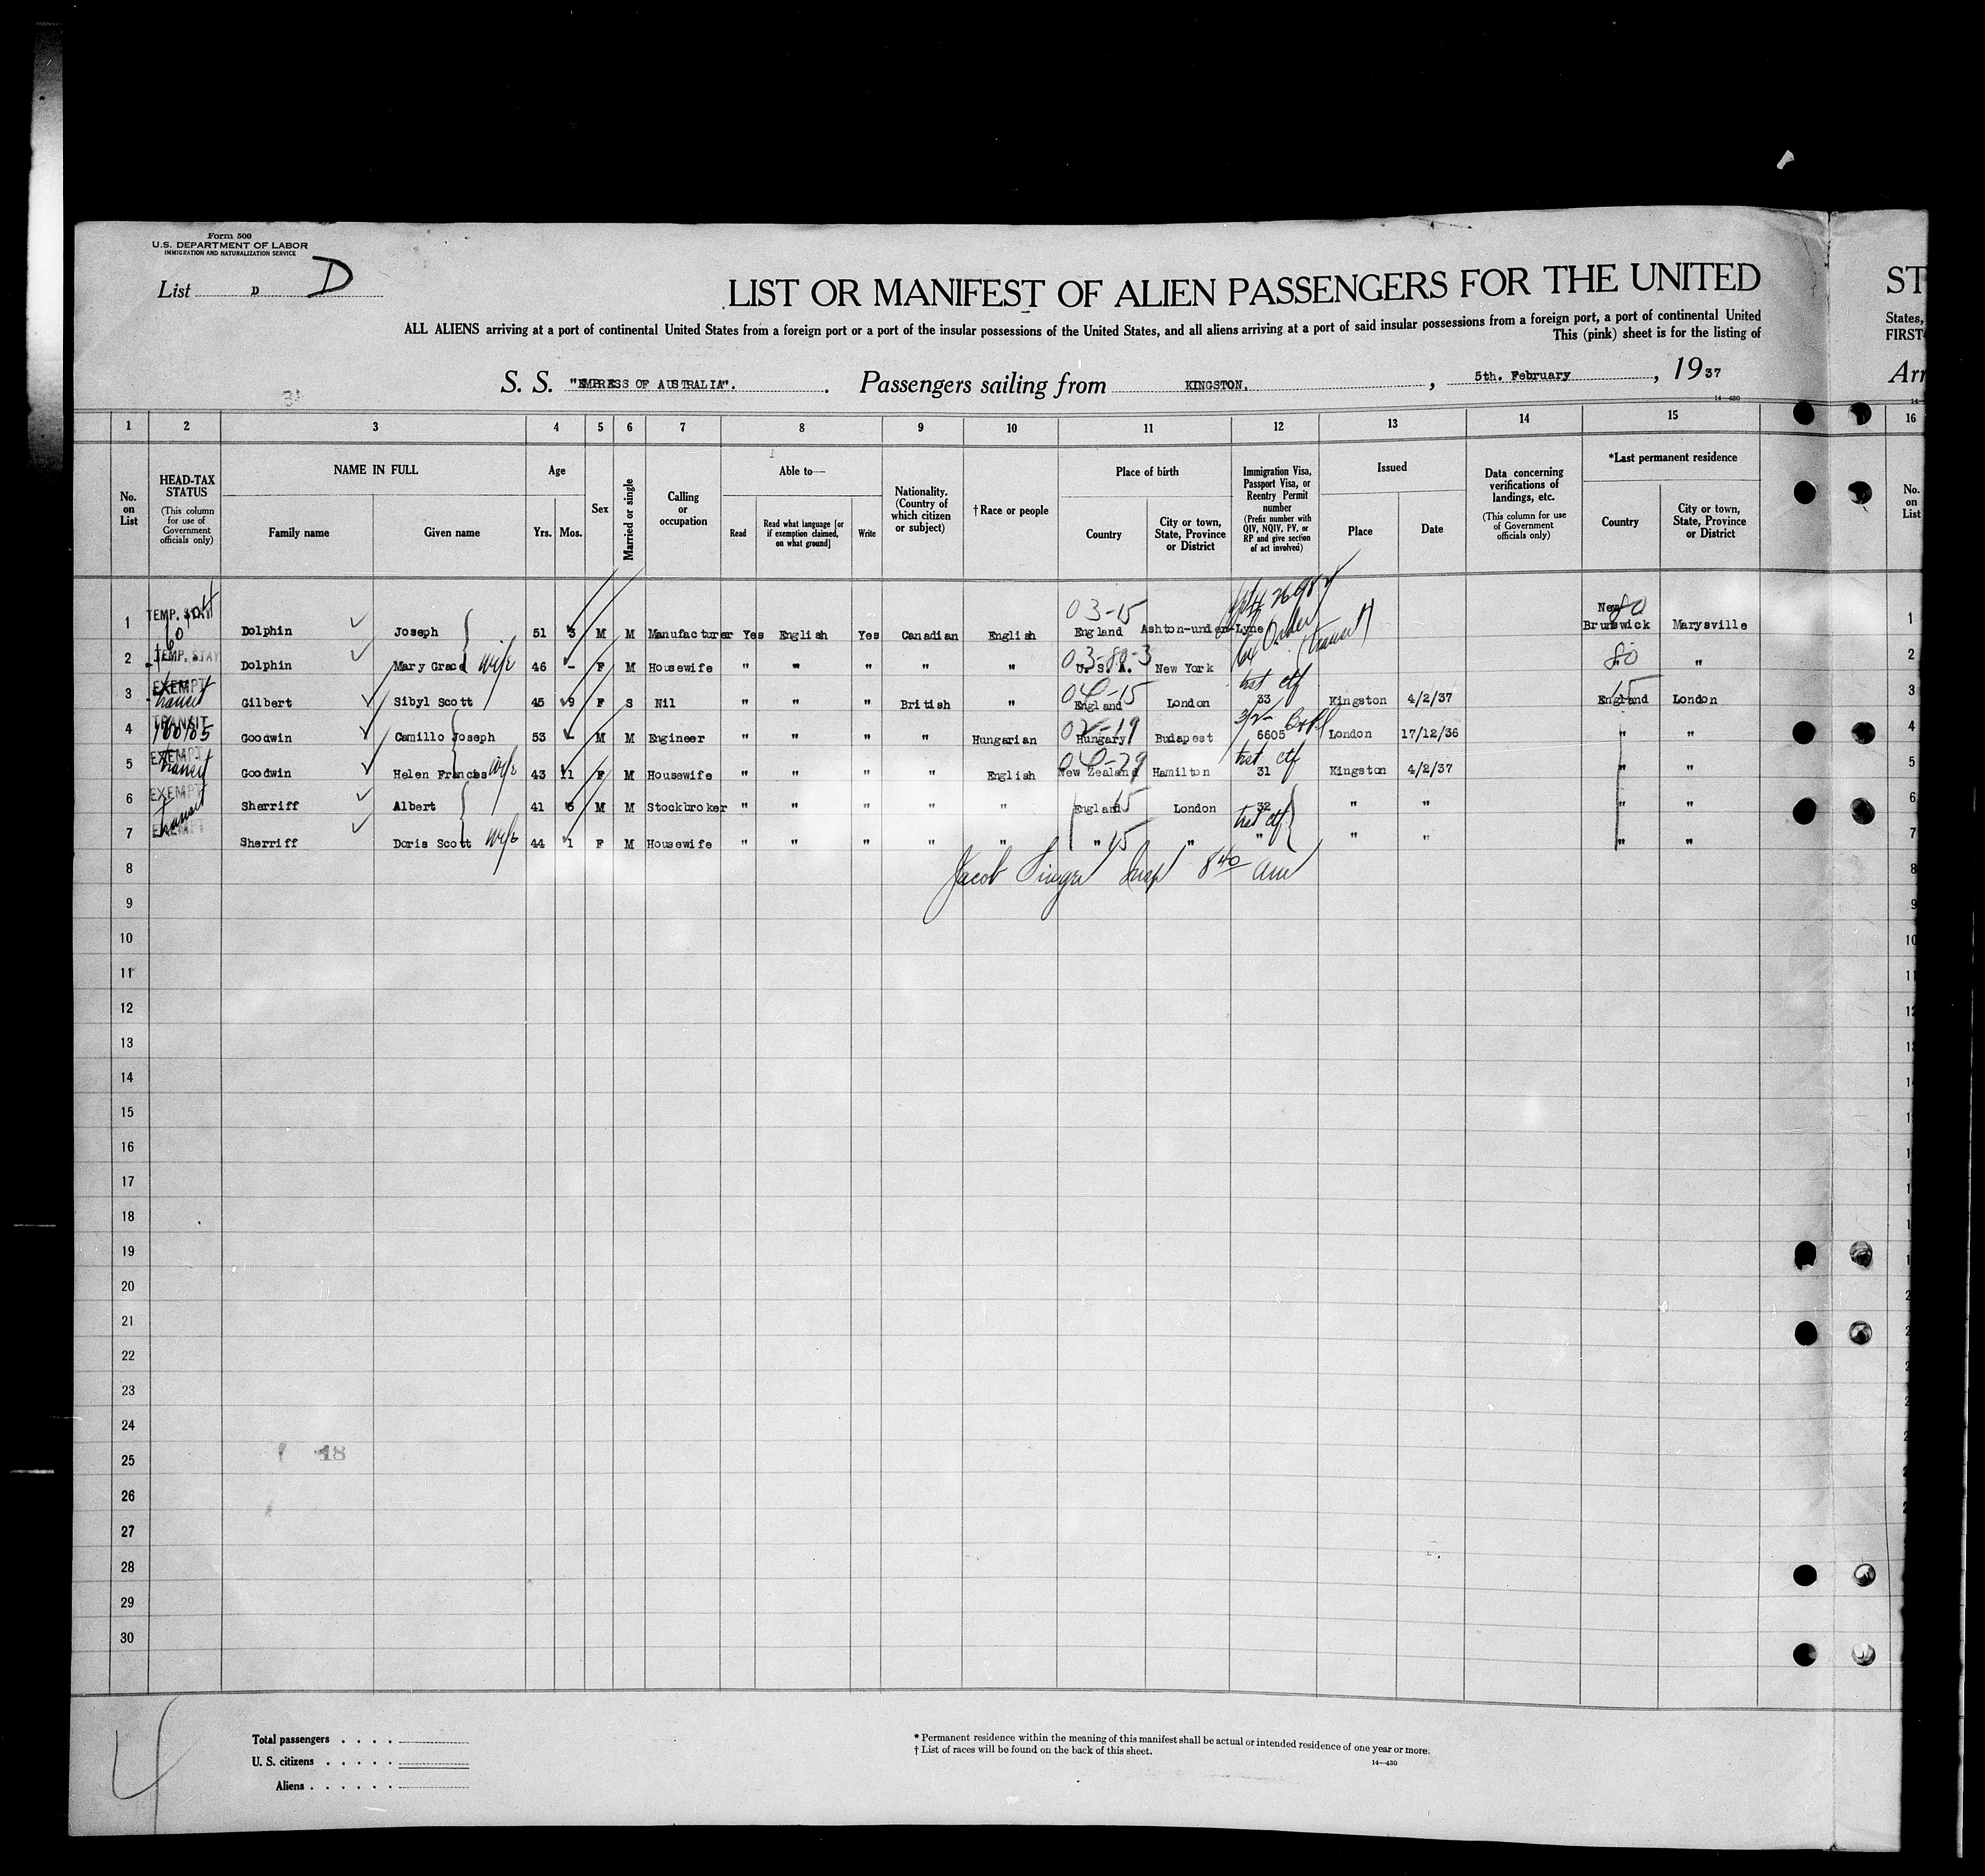 Form 500
U.S. DEPARTMENT OF LABOR
IMMIGRATION AND NATURALIZATION SERVICE
List D D
LIST OR MANIFEST OF ALIEN PASSENGERS FOR THE UNITED ST
ALL ALIENS arriving at a port of continental United States from a foreign port or a port of the insular possessions of the United States, and all aliens arriving at a port of said insular possessions from a foreign port, a port of continental United States,
This (pink) sheet is for the listing of FIRST-
S. S. "EMPRESS OF AUSTRALIA". Passengers sailing from KINGSTON. , 5th. February , 1937 Arr
14—430
1 2 3 4 5 6 7 8 9 10 11 12 13 14 15 16
No. on List
HEAD-TAX STATUS (This column for use of Government officials only)
NAME IN FULL
Family name
Given name
Age
Yrs. Mos.
Sex
Married or single
Calling or occupation
Able to—
Read
Read what language [or if exemption claimed, on what ground]
Write
Nationality. (Country of which citizen or subject)
†Race or people
Place of birth
Country
City or town, State, Province or District
Immigration Visa, Passport Visa, or Reentry Permit number (Prefix number with QIV, NQIV, PV, or RP and give section of act involved)
Issued
Place
Date
Data concerning verifications of landings, etc. (This column for use of Government officials only)
*Last permanent residence
Country
City or town, State, Province or District
No. on List
1 TEMP. STAY Dolphin Joseph 51 3 M M Manufacturer Yes English Yes Canadian English 03-15 England Ashton-under-Lyne New Brunswick 80 Marysville 1
2 TEMP. STAY Dolphin Mary Grace wife 46 - F M Housewife " " " " " 03-80-3 U. S. A. New York 80 " " 2
3 EXEMPT transit Gilbert Sibyl Scott 45 9 F S Nil " " " British " England London 33 Kingston 4/2/37 England 15 London 3
4 TRANSIT Goodwin Camillo Joseph 53 - M M Engineer " " " " Hungarian Hungary Budapest 6605 London 17/12/36 " " 4
5 EXEMPT transit Goodwin Helen Frances wife 43 11 F M Housewife " " " " English New Zealand Hamilton 31 Kingston 4/2/37 " " 5
6 EXEMPT transit Sherriff Albert 41 6 M M Stockbroker " " " " " England 15 London 32 " " " " 6
7 EXEMPT Sherriff Doris Scott wife 44 1 F M Housewife " " " " " " 15 " " " " " " 7
8 Jacob 8 40 am 8
9 9
10
11
12
13
14
15
16
17
18
19
20
21
22
23
24
25 48
26
27
28
29
30
Total passengers
U. S. citizens
Aliens
* Permanent residence within the meaning of this manifest shall be actual or intended residence of one year or more.
† List of races will be found on the back of this sheet.
14—430